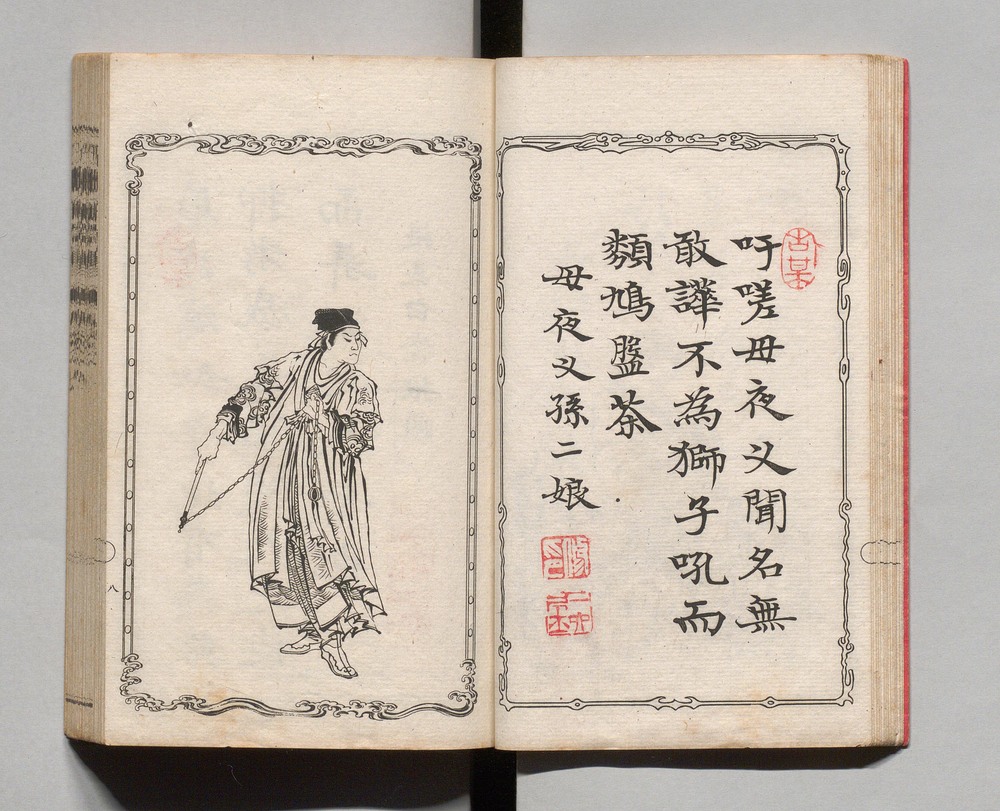 吁嗟毋夜义聞名無
敢譁不為獅子吼而
類鳩盤荼
毋夜义孫二娘
八